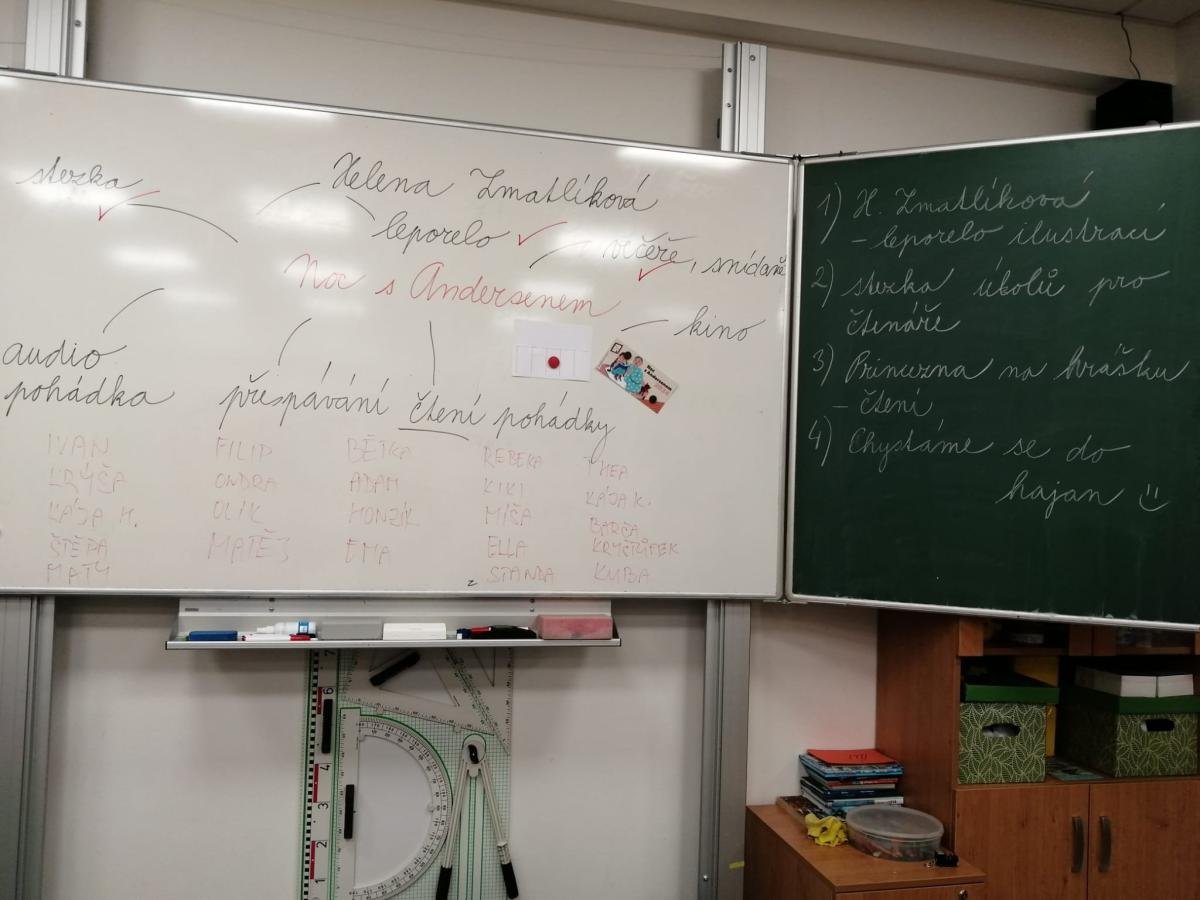 stezka
Helena Zmatlíková
leporelo
večeře, snídaně
Noc s Andersenem
kino
audio
pohádka
přespávání
čtení pohádky
IVAN
KRÝŠA
KÁJA H.
ŠTĚPA
MATY
FILIP
ONDRA
OLÍK
MATĚJ
BĚTKA
ADAM
HONZÍK
EMA
REBEKA
KIKI
MÍŠA
ELLA
STANDA
THEA
KÁJA K.
BARČA
KRYŠTŮFEK
KUBA
1) H. Zmatlíková
- leporelo ilustrací
2) stezka úkolů pro
čtenáře
3) Princezna na hrášku
- čtení
4) Chystáme se do
hajan